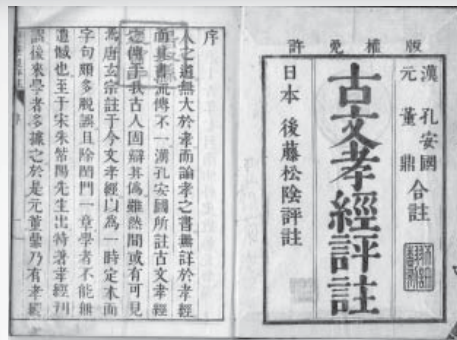 版權免許
漢 孔安國
元 董鼎 合註
古文孝經評註
日本 後藤松陰評註
序
人之道無大於孝而論孝之書無詳於孝經
而其書流傳不一漢孔安國所註古文孝經
之傳于我古人固辯其偽雖然間或有可見
焉唐玄宗註于今文孝經以為一時定本而
字句頗多脫誤且除閨門一章學者不能無
遺憾也至于宋朱紫陽先生出特著孝經刊
誤後來學者多據之於是元董鼎乃有孝經